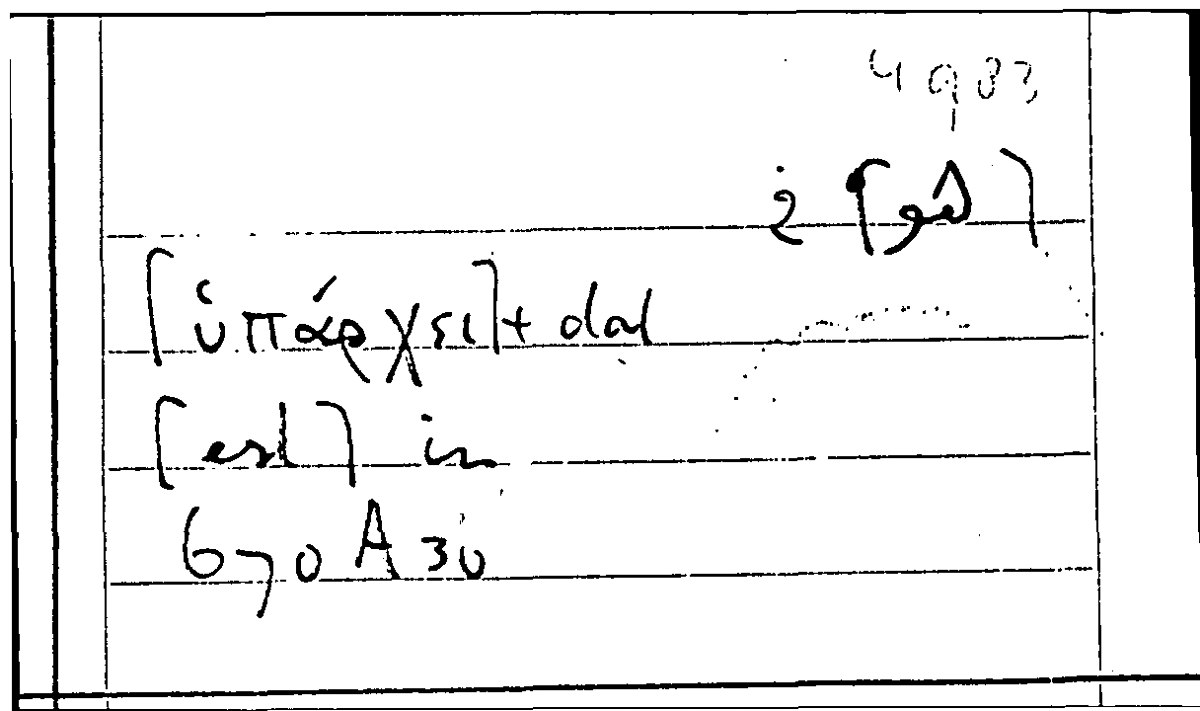 4983
[ὑπάρχει] + dat
[est] in
670A30